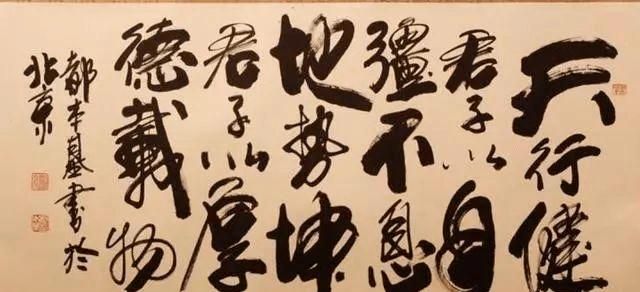 天行健
君子以自
彊不息
地势坤
君子以厚
德載物
都本基書於
北京